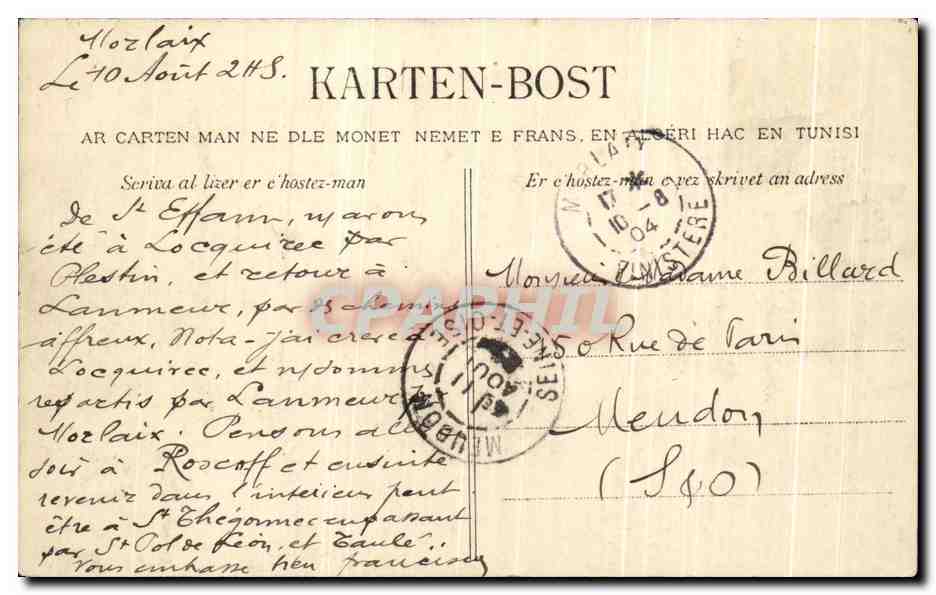 Morlaix
Le 10 Août 2HS.
KARTEN-BOST
AR CARTEN MAN NE DLE MONET NEMET E FRANS, EN ALGÉRI HAC EN TUNISI
Scriva al lizer er c'hostez-man
de St Effam, n/avons
été à Locquirec par
Plestin, et retour à
Lanmeur, par des chemins
affreux, Nota - j'ai crevé à
Locquirec, et n/sommes
repartis par Lanmeur
Morlaix. Pensons
soir à Roscoff et ensuite
revenir dans l'intérieur peut
être à St Thégonnec en passant
par St Pol de Léon, et Taulé.
Vous embrasse bien
Er c'hostez-man e vez skrivet an adress
Monsieur Madame Billard
50 Rue de Paris
Meudon
(S&O)
MORLAIX
17
10 -8
04
FINISTERE
SEINE-ET-OISE
11
AOU
MEUDON
CPAPHIL